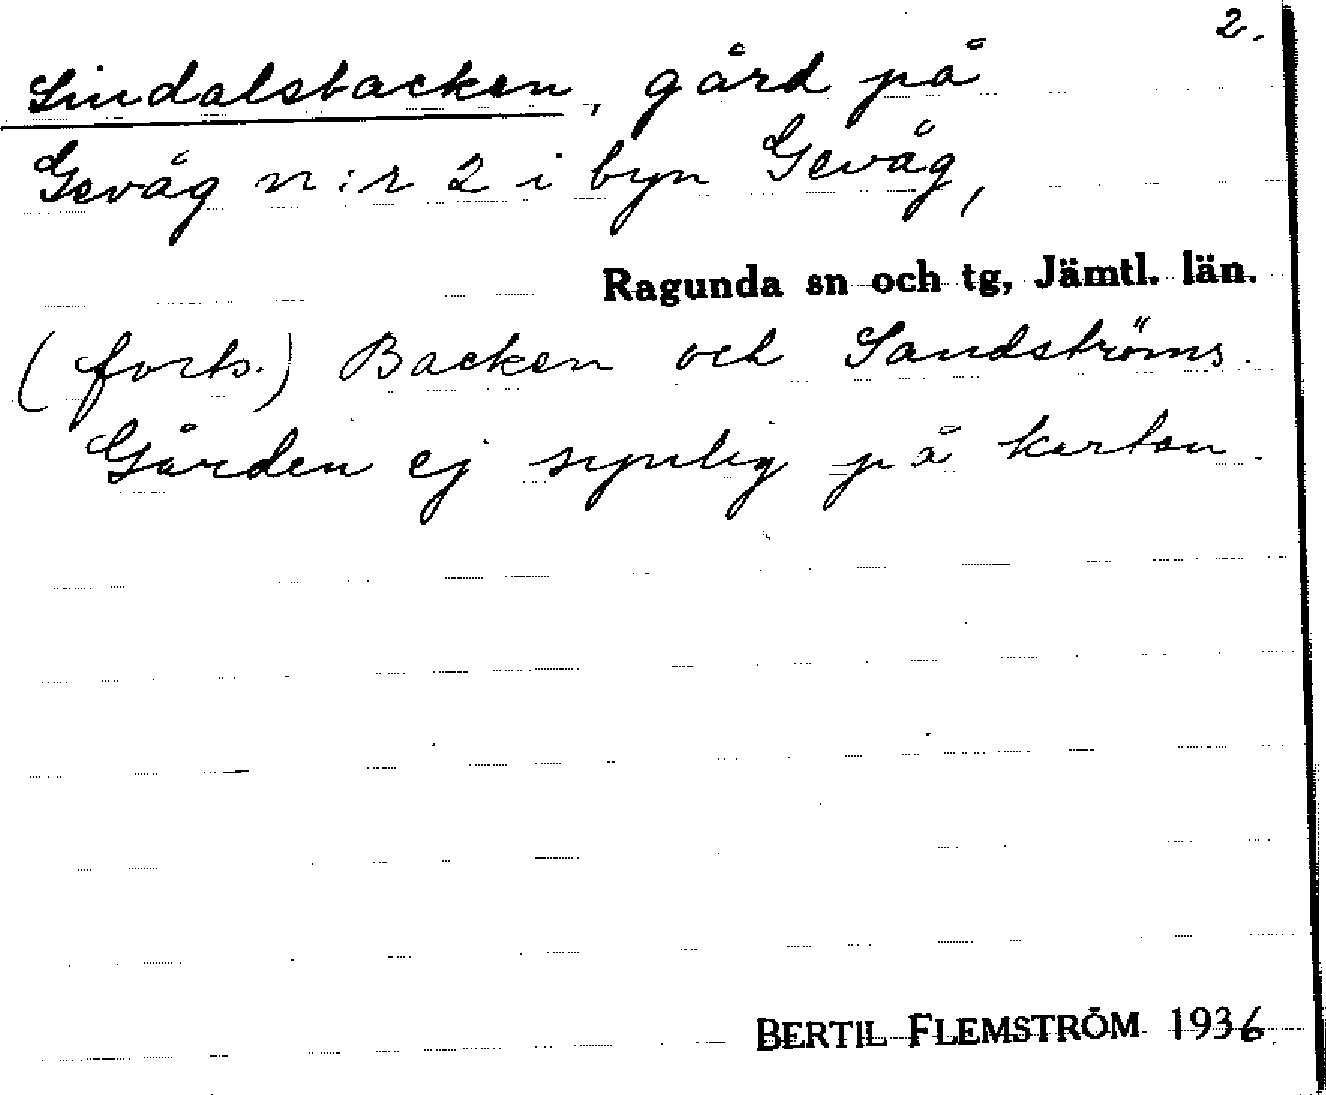 2.
Lindalsbacken, gård på
Gevåg n:r 2 i byn Gevåg,
Ragunda sn och tg, Jämtl. län.
(forts.) Backen och Sandströms.
Gården ej synlig på kartan.
BERTIL FLEMSTRÖM 1936